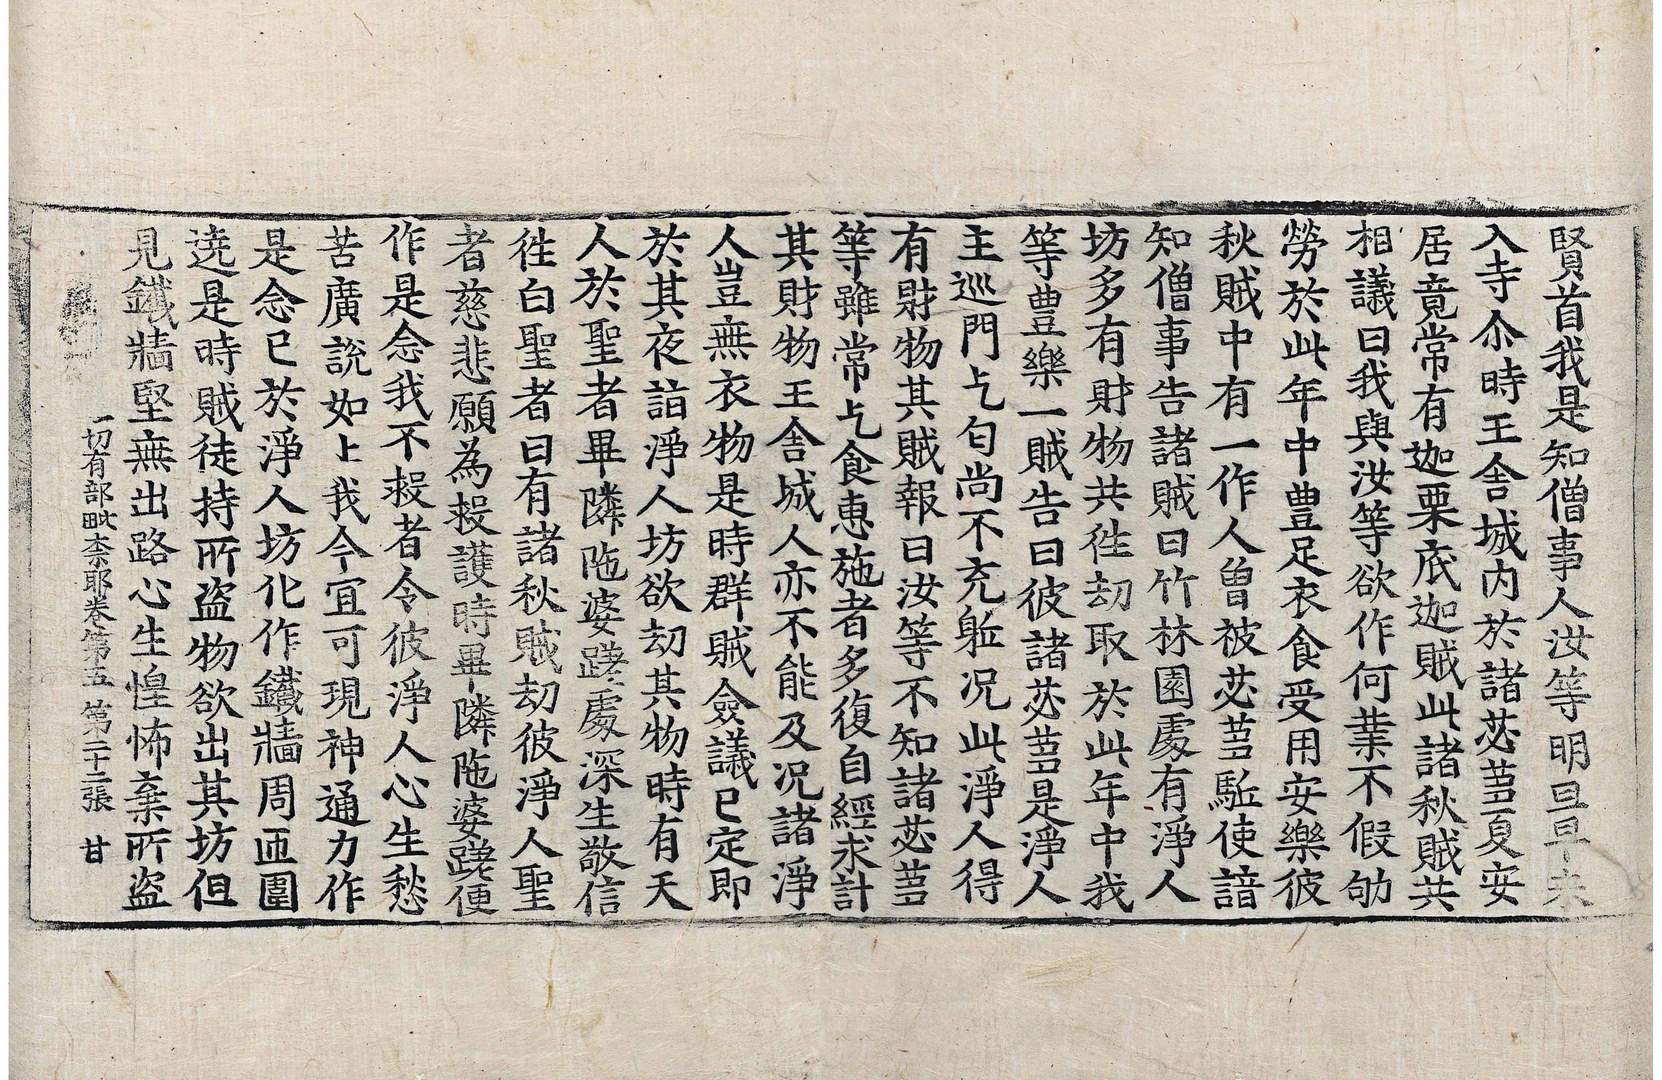 賢首我是知僧事人汝等明旦早来
入寺尒時王舍城內於諸苾蒭夏安
居竟常有迦栗底迦賊此諸秋賊共
相議曰我與汝等欲作何業不假劬
勞於此年中豊足衣食受用安樂彼
秋賊中有一作人曾被苾蒭駈使諳
知僧事告諸賊曰竹林園處有淨人
坊多有財物共徃劫取於此年中我
等豊樂一賊告曰彼諸苾蒭是淨人
主巡門乞匂尚不充軀况此淨人得
有財物其賊報曰汝等不知諸苾蒭
等雖常乞食惠施者多復自經求計
其財物王舍城人亦不能及况諸淨
人豈無衣物是時群賊僉議已定即
於其夜詣淨人坊欲劫其物時有天
人於聖者畢隣陁婆蹉處深生敬信
徃白聖者曰有諸秋賊劫彼淨人聖
者慈悲願為救護時畢隣陁婆蹉便
作是念我不救者令彼淨人心生愁
苦廣說如上我今宜可現神通力作
是念已於淨人坊化作鐵牆周匝圍
遶是時賊徒持所盜物欲出其坊但
見鐵牆堅無出路心生惶怖棄所盜
一切有部毗柰耶卷第五 第二十二張 甘